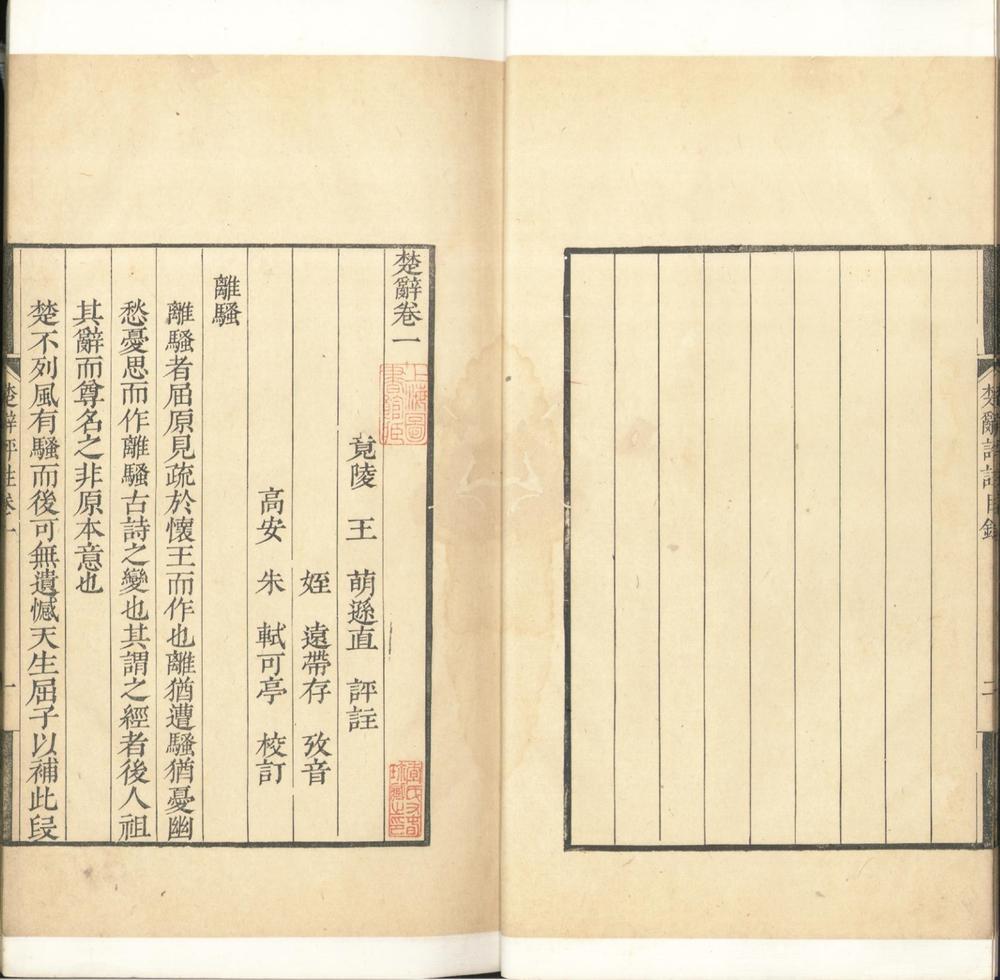 楚辭評註目錄
二
楚辭卷一
上海圖
書館藏
竟陵　王　萌遜直　評註
姪　遠帶存　攷音
高安　朱　軾可亭　校訂
離騷
離騷者屈原見疏於懷王而作也離猶遭騷猶憂幽
愁憂思而作離騷古詩之變也其謂之經者後人祖
其辭而尊名之非原本意也
楚不列風有騷而後可無遺憾天生屈子以補此段
楚辭評註卷一
一